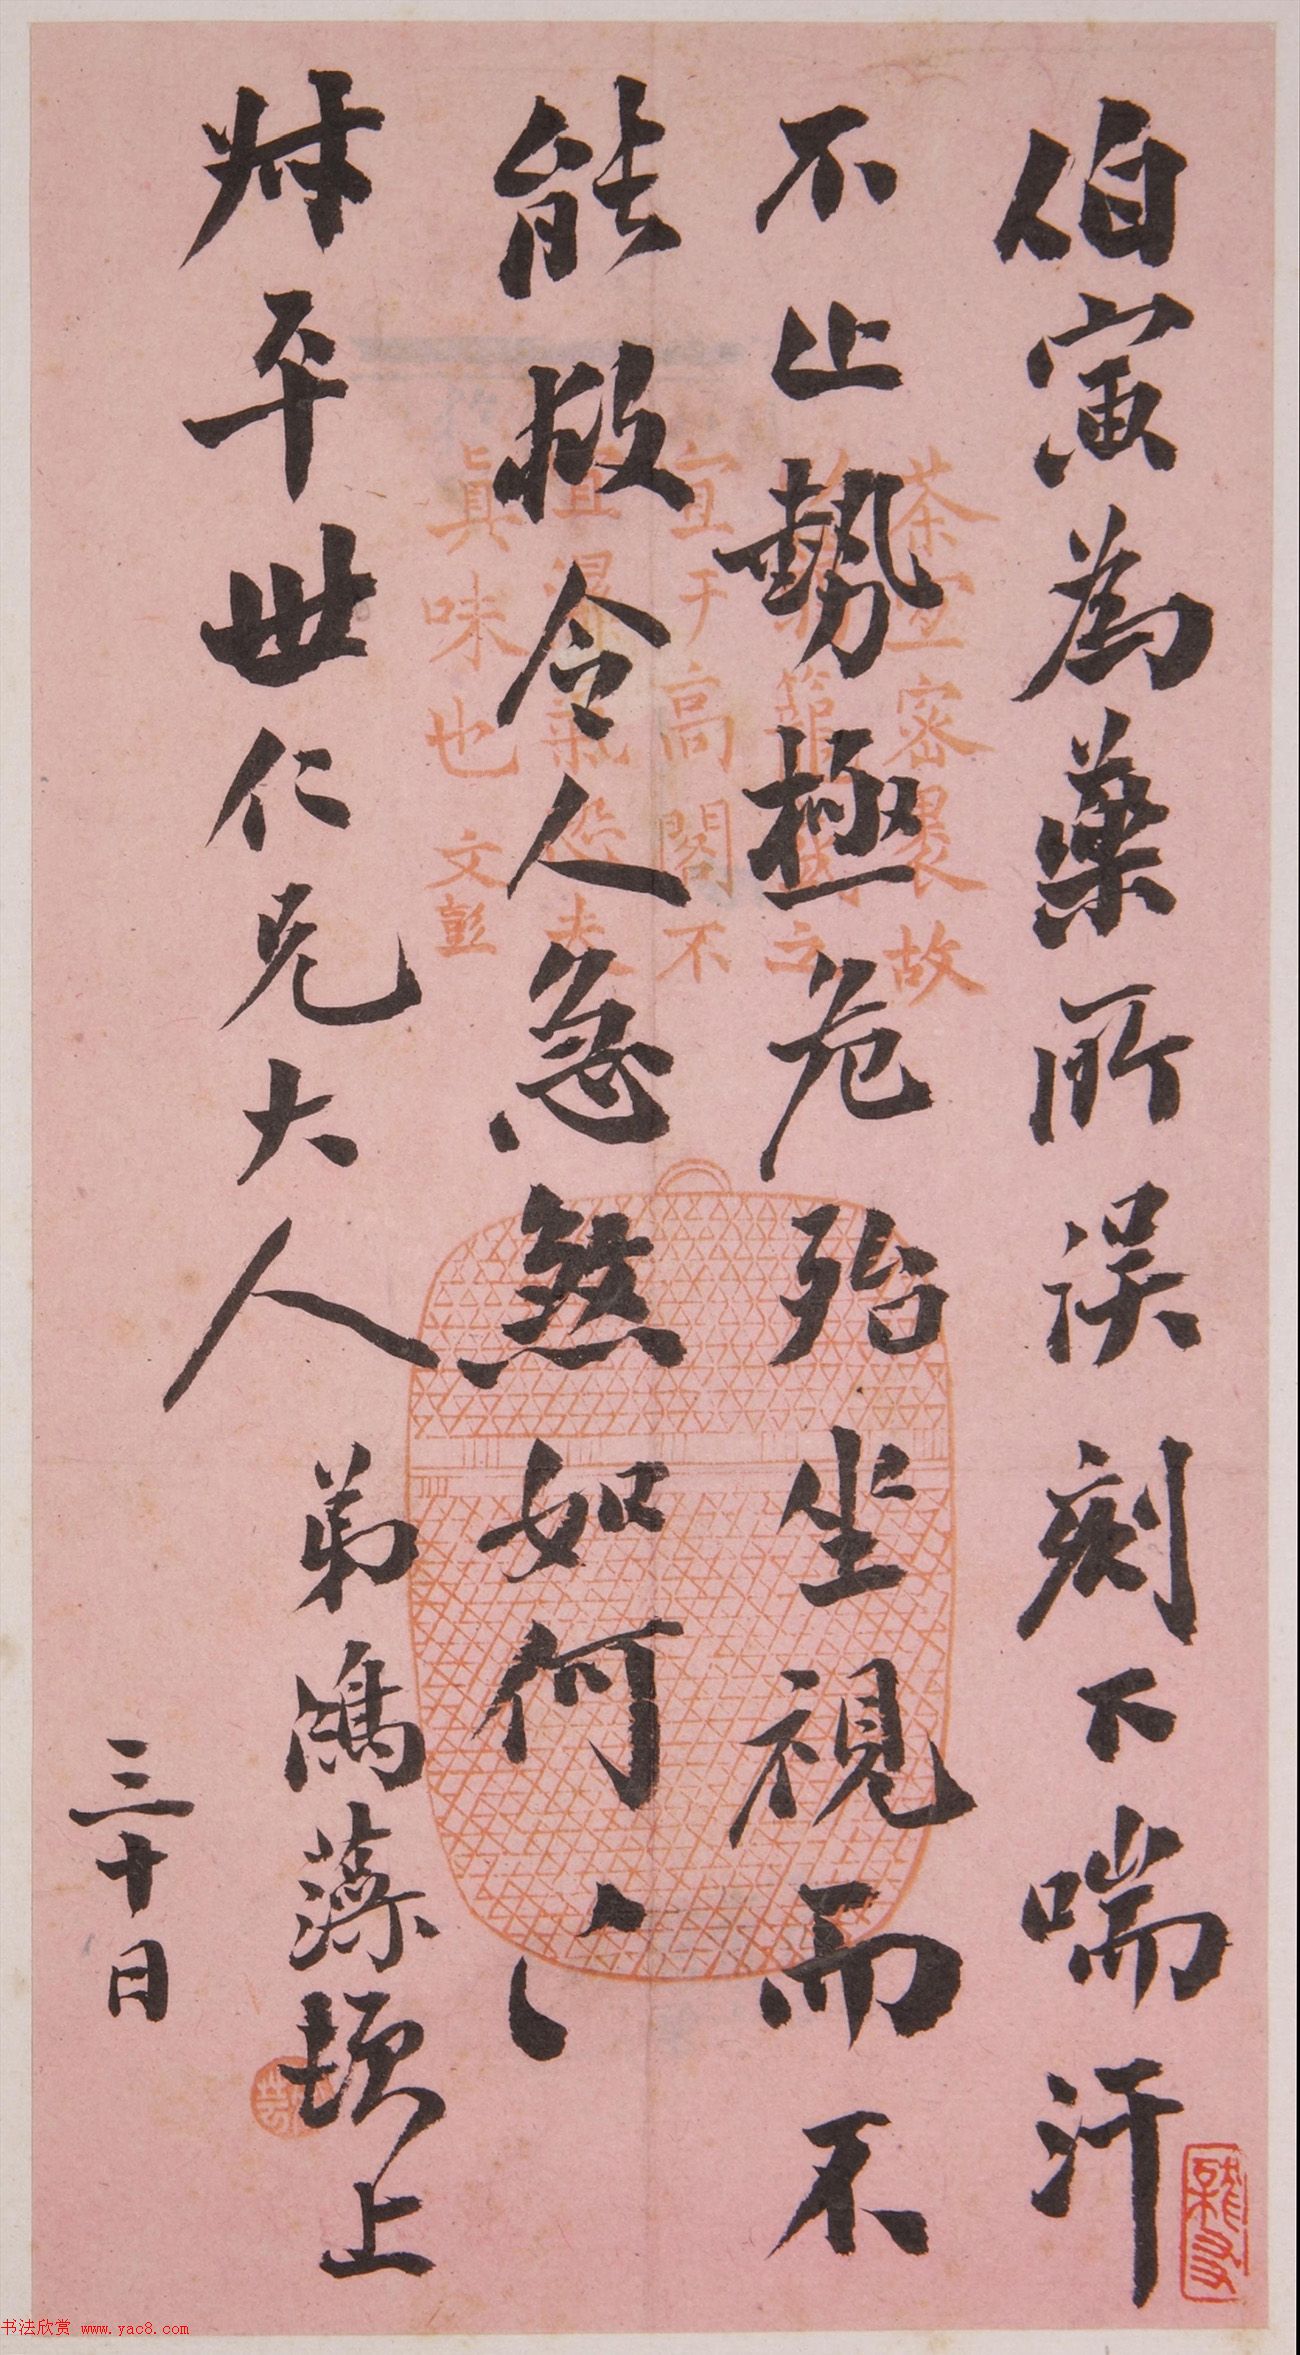 伯寅為藥所误刻下喘汗
不止勢極危殆坐視而不
能救令人急煞如何〻〻
叔平世仁兄大人
弟鴻藻頓上
三十日
茶宜密裹故
籠
宜于高閣不
宜濕氣恐失
真味也 文彭
书法欣赏 www.yac8.com